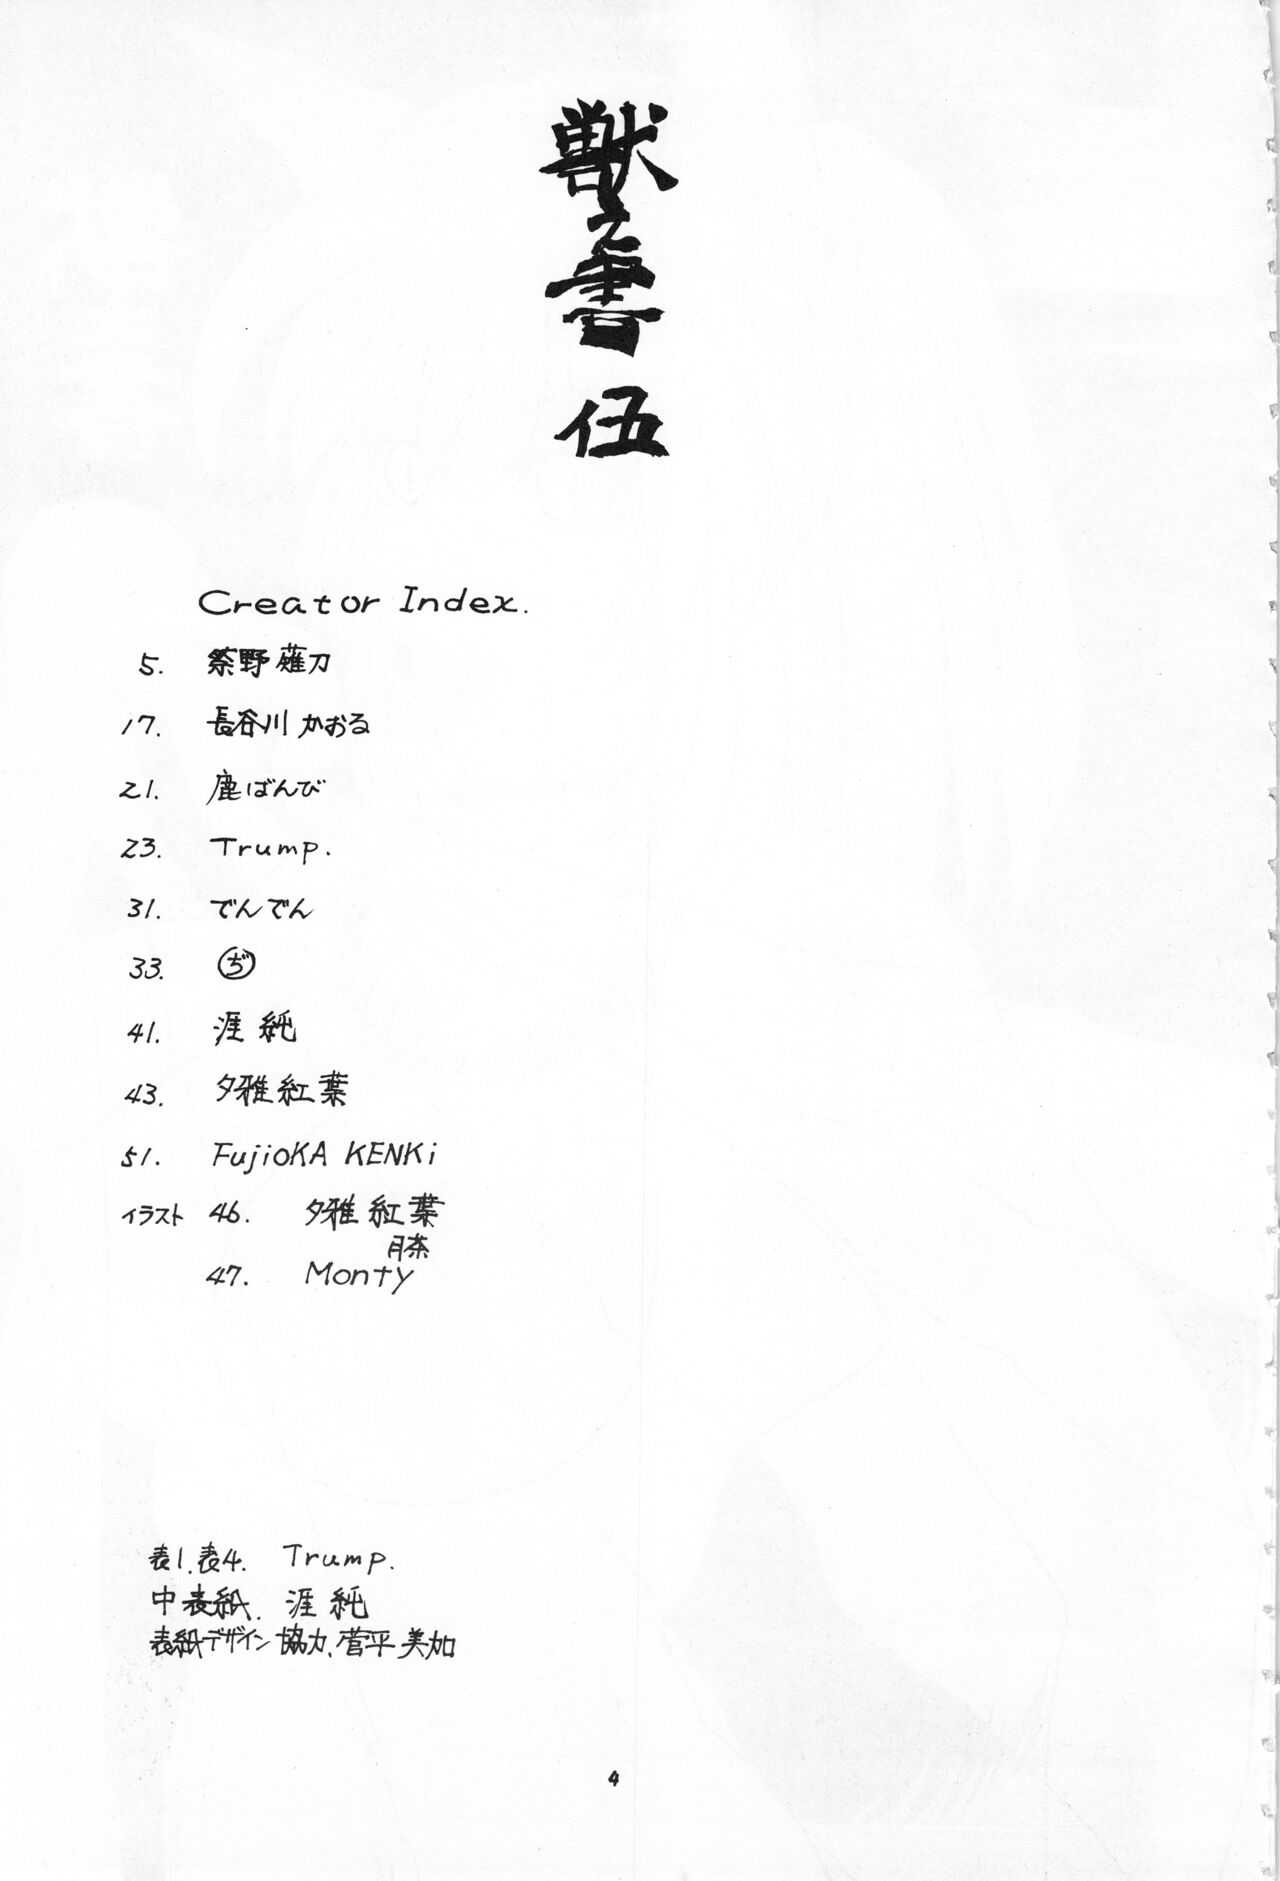 獣之書 伍
Creator Index.
5. 祭野薙刀
17. 長谷川かおる
21. 鹿ばんび
23. Trump.
31. でんでん
33. ぢ
41. 涯 純
43. 夕雅紅葉
51. FujioKA KENKi
イラスト 46. 夕雅紅葉
月茶
47. Monty
表1.表4. Trump.
中表紙. 涯 純
表紙デザイン協力、菅平美加
4